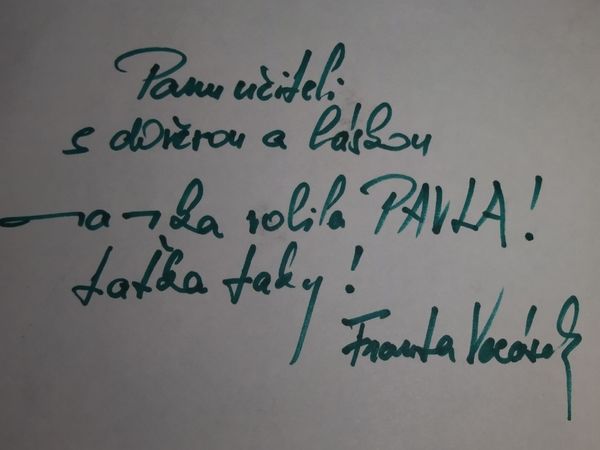 Panu učiteli
s důvěrou a láskou
mamka volila PAVLA!
taťka taky!
Franta